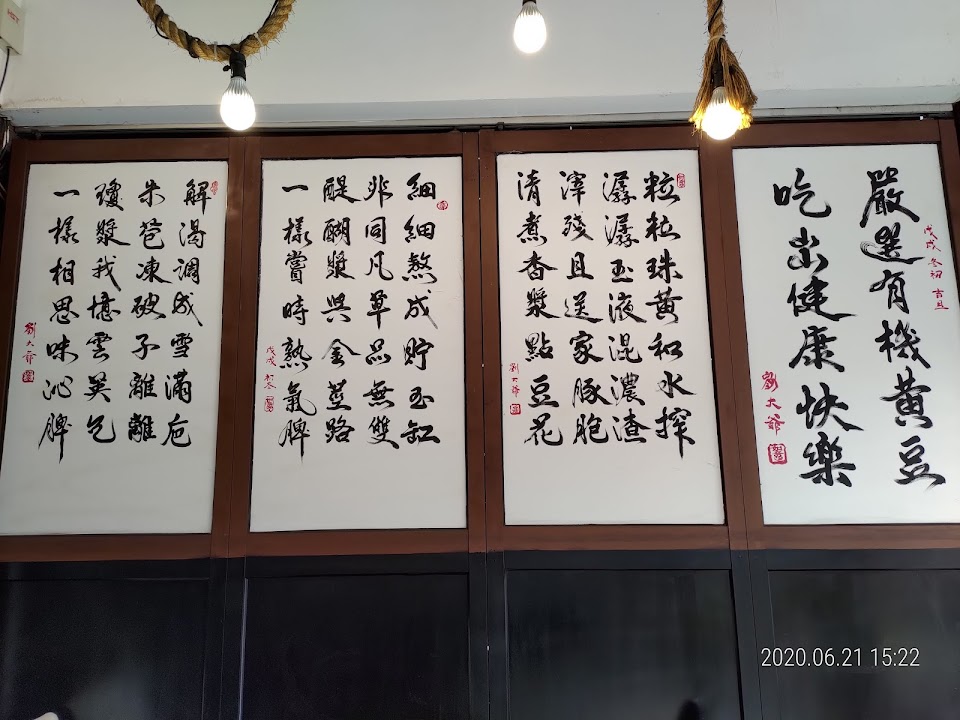 嚴選有機黃豆
戊戌冬初 吉旦
吃出健康快樂
劉大爺
粒粒珠黃和水搾
潺潺玉液混濃渣
滓殘且送家豚胞
清煮香漿點豆花
劉大爺
細細熬成貯玉缸
非同凡草品無雙
醍醐漿與金莖路
一樣嘗時熱氣脾
戊戌初冬
解渴調成雪滿卮
朱苞凍破子離離
瓊漿我憶雲英乞
一樣相思味沁脾
劉大爺
2020.06.21 15:22